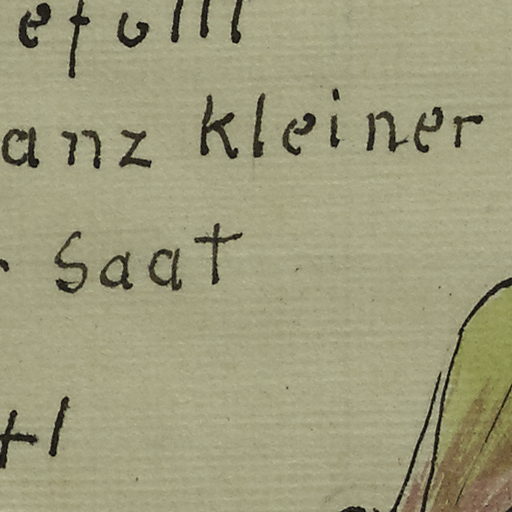 efüllt
anz kleiner
Saat